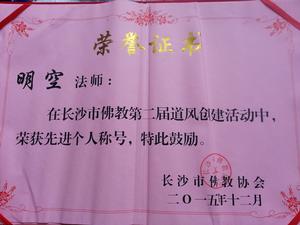 荣誉证书
明空 法师：
在长沙市佛教第二届道风创建活动中，
荣获先进个人称号，特此鼓励。
长沙市佛教协会
二〇一五年十二月